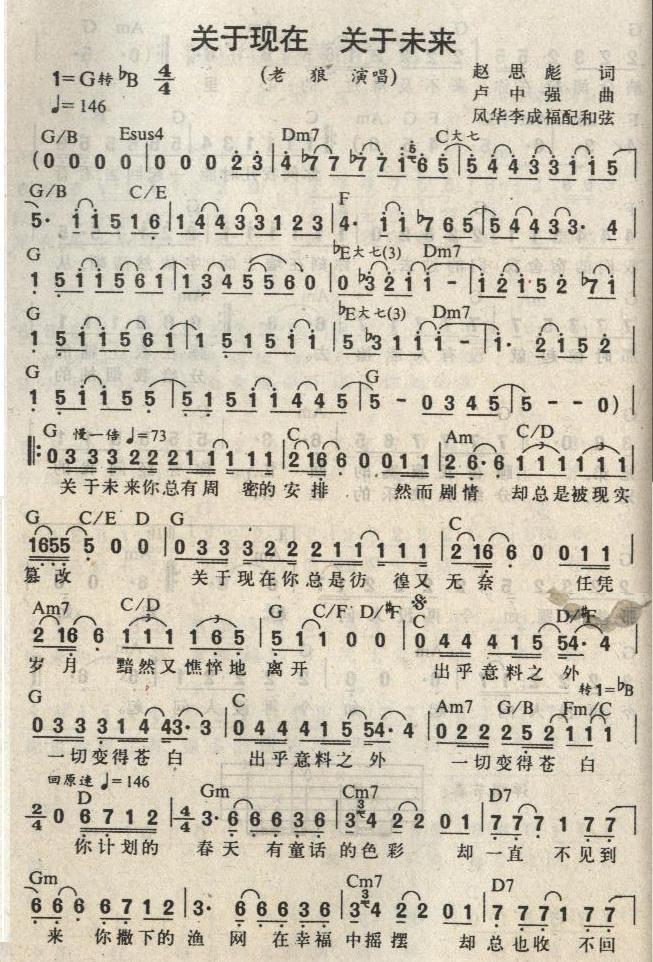 关于现在 关于未来
1=G转♭B 4/4 (老狼 演唱) 赵思彪 词
♩=146 卢中强 曲
风华李成福配和弦
G/B Esus4 Dm7 C大七
(0 0 0 0 | 0 0 0 2 3 | 4 ♭7 7 ♭7 7 i 6 5 | 5 4 4 3 3 1 1 5
G/B C/E F
5· 1 1 5 1 6 | 1 4 4 3 3 1 2 3 | 4· 1 1 ♭7 6 5 | 5 4 4 3 3· 4
G ♭E大七(3) Dm7
1 5 1 1 5 6 1 | 1 3 4 5 5 6 0 | 0 ♭3 2 1 1 - | 1 2 1 5 2 ♭7 1
G ♭E大七(3) Dm7
1 5 1 1 5 6 1 | 1 1 5 1 5 1 1 | 5 ♭3 1 1 1 - | 1· 2 1 5 2
G G
1 5 1 1 5 5 | 5 1 5 1 1 4 4 5 | 5 - 0 3 4 5 | 5 - - 0)
G 慢一倍 ♩=73 C Am C/D
0 3 3 3 2 2 2 1 1 1 1 1 | 2 1 6 6 0 0 1 1 | 2 6· 6 1 1 1 1 1 1
关于未来你总有周 密的安排 然而剧情 却总是被现实
G C/E D G C
1655 5 0 0 | 0 3 3 3 2 2 2 1 1 1 1 1 | 2 16 6 0 0 1 1
篡改 关于现在你总是彷 徨又无奈 任凭
Am7 C/D G C/F D/♯F C D/♯F
2 16 6 1 1 1 1 6 5 | 5 1 1 0 0 | 0 4 4 4 1 5 54· 4
岁月 黯然又憔悴地 离开 出乎意料之外
转1=♭B
G C Am7 G/B Fm/C
0 3 3 3 3 1 4 43· 3 | 0 4 4 4 4 1 5 54· 4 | 0 2 2 2 2 5 2 1 1 1
一切变得苍白 出乎意料之外 一切变得苍 白
回原速 ♩=146
D Gm Cm7 D7
2/4 0 6 7 1 2 | 4/4 3· 6 6 6 3 6 | 3 4 2 2 0 1 | 7 7 7 1 7 7
你计划的 春天 有童话的色彩 却一直 不见到
Gm Cm7 D7
6 6 6 6 7 1 2 | 3· 6 6 6 3 6 | 3 4 2 2 0 1 | 7 7 7 1 7 7
来 你撒下的渔 网 在幸福中摇摆 却总也收 不回